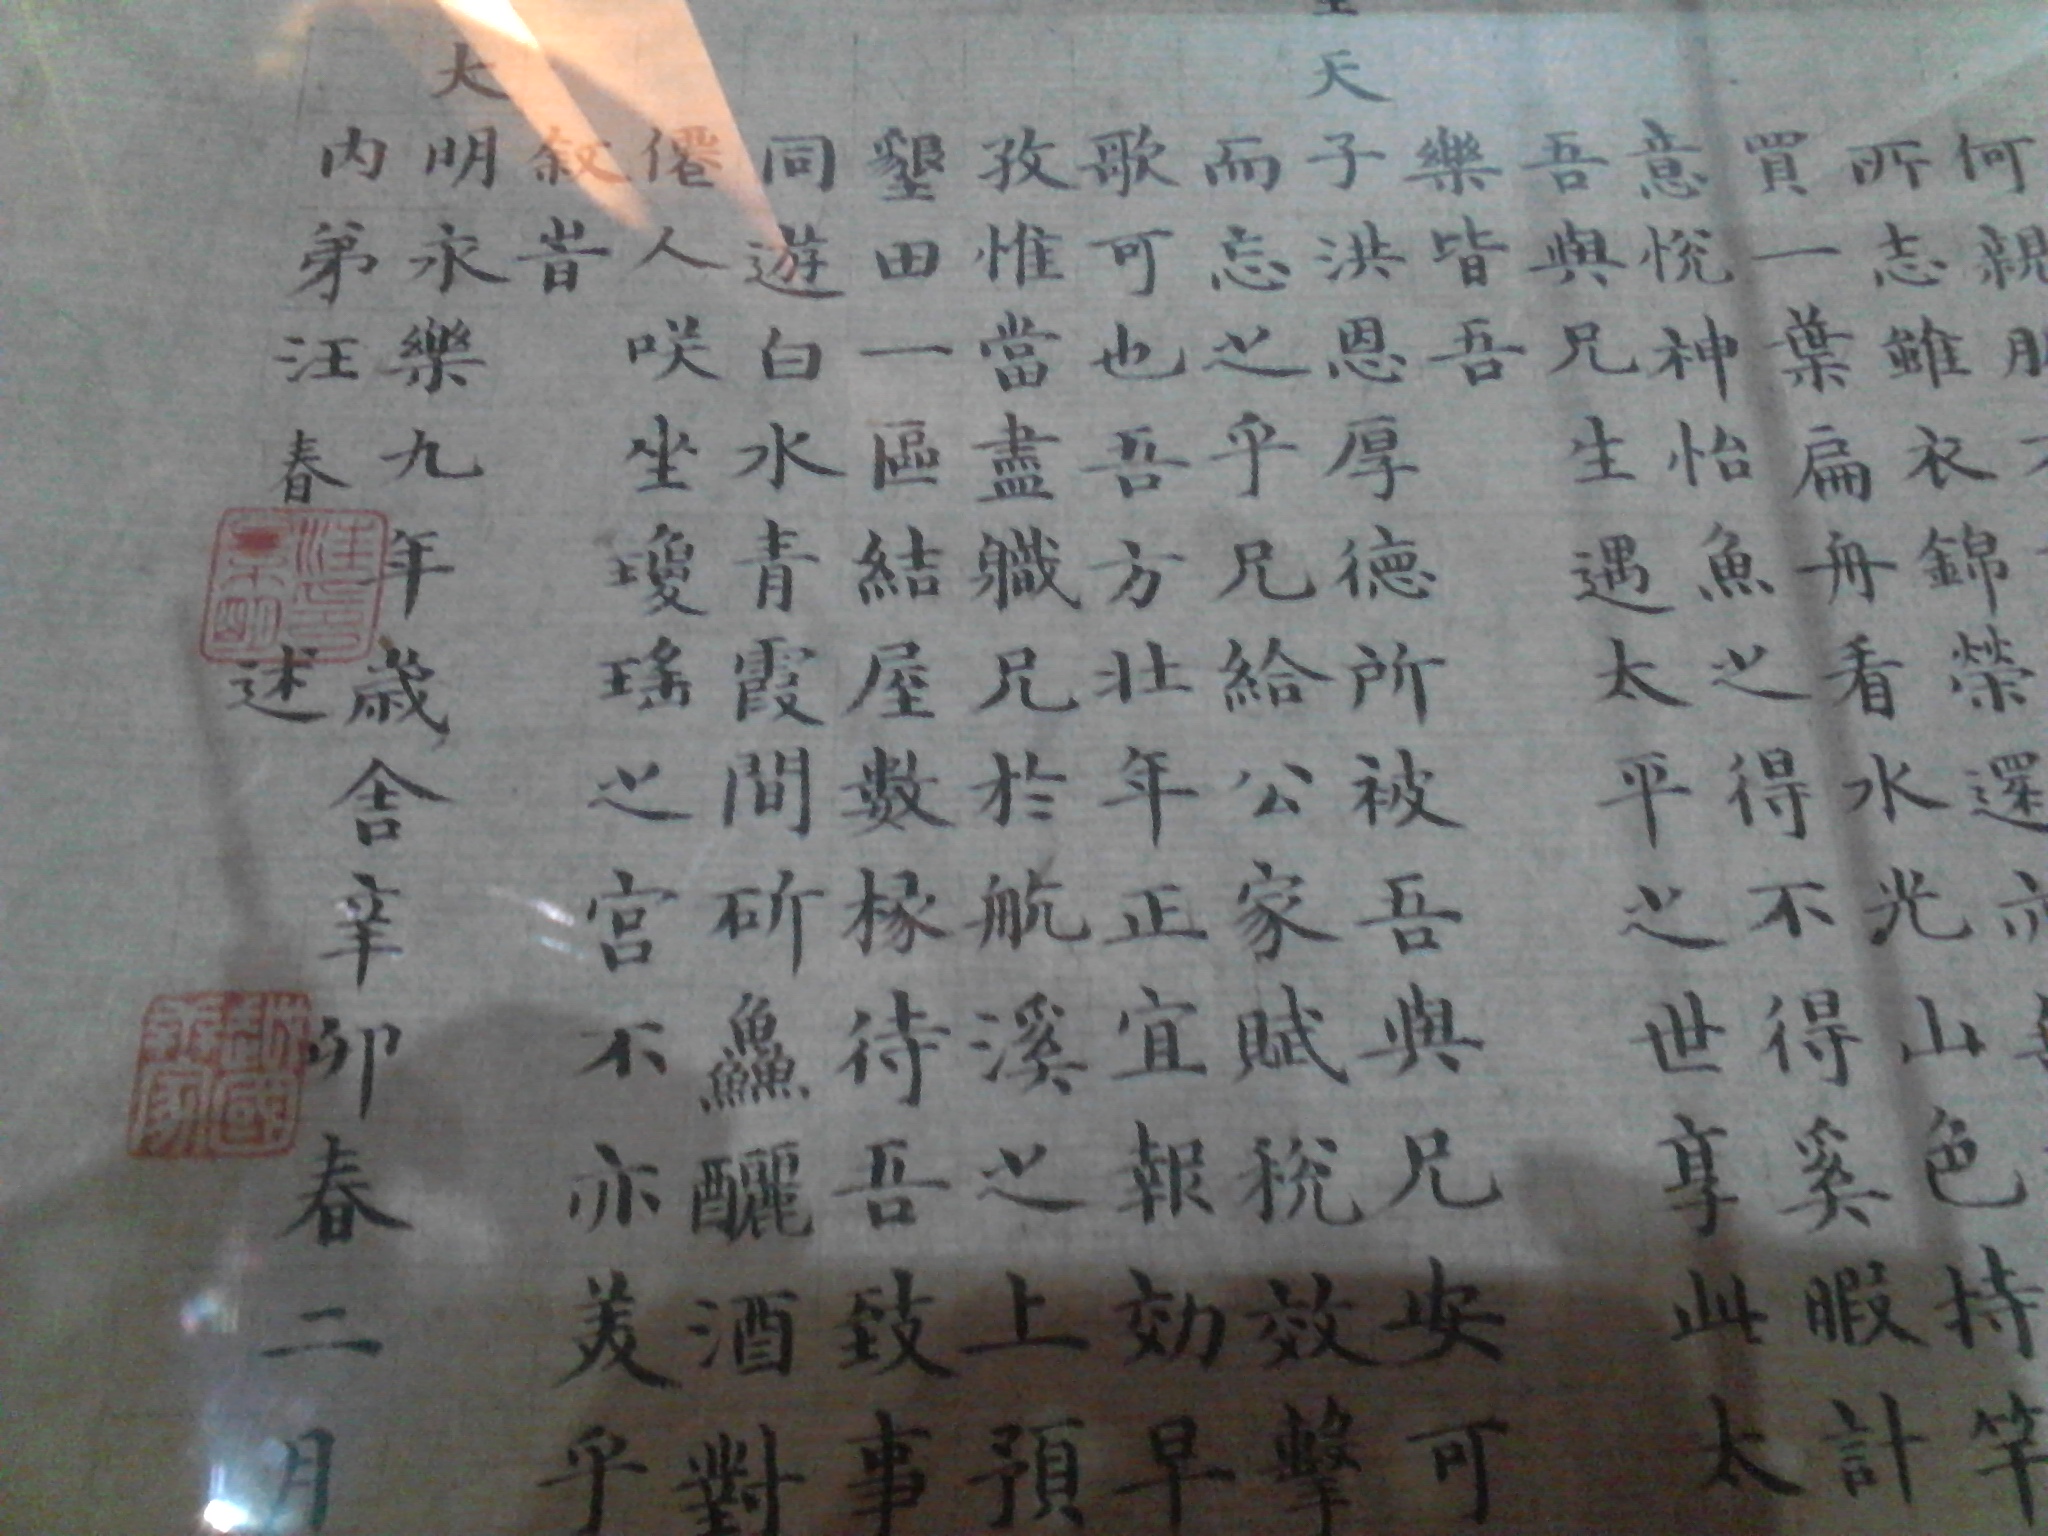 何親
所志雖衣錦榮還亦
買一葉扁舟看水光山色持竿
意悅神怡魚之得不得奚暇計
吾與兄生遇太平之世享此太
樂皆吾
天子洪恩厚德所被吾與兄安可
而忘之乎兄給公家賦稅效擊
歌可也吾方壯年正宜報効早
孜惟當盡職兄於航溪之上預
墾田一區結屋數椽待吾致事
同遊白水青霞間斫鱻釃酒對
僊人咲坐瓊瑤之宮不亦美乎
敘昔
大
明永樂九年歲舍辛卯春二月
內弟汪春述